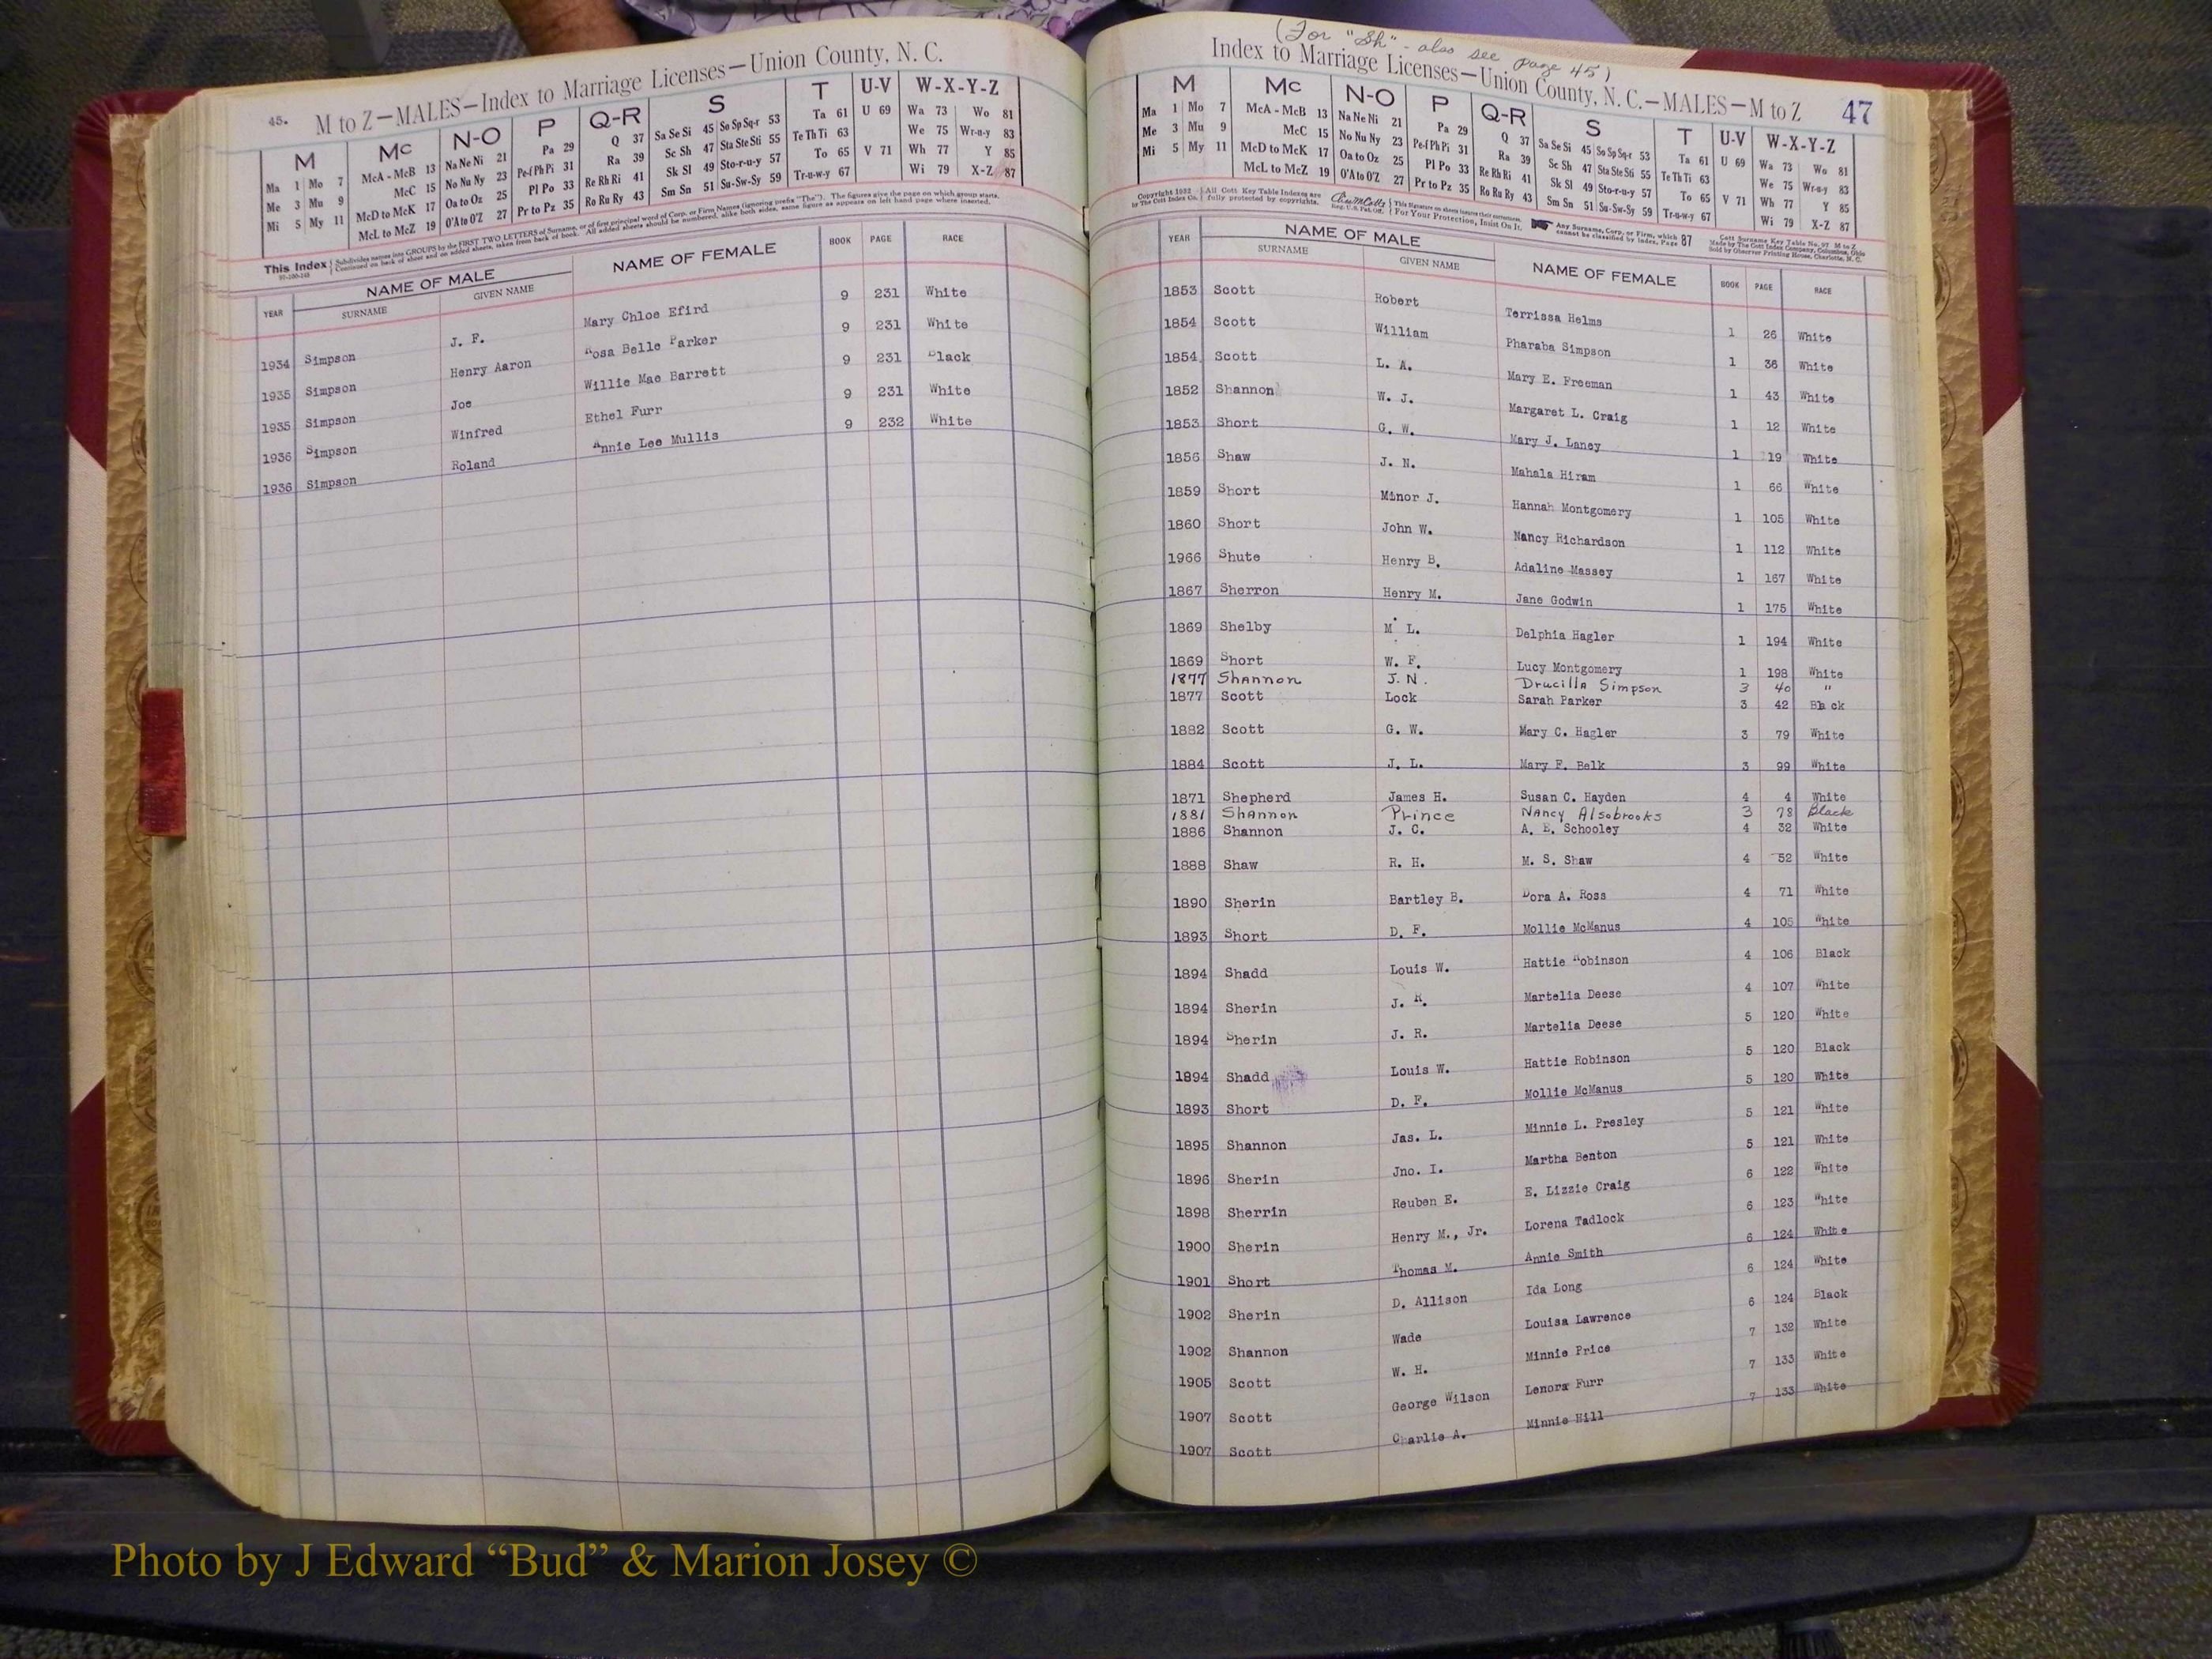 45. M to Z—MALES—Index to Marriage Licenses—Union County, N. C.
M Mc N-O P Q-R S T U-V W-X-Y-Z
Ma 1 Mo 7 McA - McB 13 Na Ne Ni 21 Pa 29 Q 37 Sa Se Si 45 So Sp Sq-r 53 Ta 61 U 69 Wa 73 Wo 81
Me 3 Mu 9 McC 15 No Nu Ny 23 Pe-f Ph Pi 31 Ra 39 Sc Sh 47 Sta Ste Sti 55 Te Th Ti 63 We 75 Wr-u-y 83
Mi 5 My 11 McD to McK 17 Oa to Oz 25 Pl Po 33 Re Rh Ri 41 Sk Sl 49 Sto-r-u-y 57 To 65 V 71 Wh 77 Y 85
McL to McZ 19 O'A to O'Z 27 Pr to Pz 35 Ro Ru Ry 43 Sm Sn 51 Su-Sw-Sy 59 Tr-u-w-y 67 Wi 79 X-Z 87
This Index Subdivides names into GROUPS by the FIRST TWO LETTERS of Surname, or of first principal word of Corp. or Firm Names (ignoring prefix "The"). The figures give the page on which group starts.
Continued on back of sheet and on added sheets, taken from back of book. All added sheets should be numbered, alike both sides, same figure as appears on left hand page where inserted.
YEAR NAME OF MALE NAME OF FEMALE BOOK PAGE RACE
SURNAME GIVEN NAME
1934 Simpson J. F. Mary Chloe Efird 9 231 White
1935 Simpson Henry Aaron Rosa Belle Parker 9 231 White
1935 Simpson Joe Willie Mae Barrett 9 231 Black
1936 Simpson Winfred Ethel Furr 9 231 White
1936 Simpson Roland Annie Lee Mullis 9 232 White
(For "Sh" - also see page 45)
Index to Marriage Licenses—Union County, N. C.—MALES—M to Z 47
M Mc N-O P Q-R S T U-V W-X-Y-Z
Ma 1 Mo 7 McA - McB 13 Na Ne Ni 21 Pa 29 Q 37 Sa Se Si 45 So Sp Sq-r 53 Ta 61 U 69 Wa 73 Wo 81
Me 3 Mu 9 McC 15 No Nu Ny 23 Pe-f Ph Pi 31 Ra 39 Sc Sh 47 Sta Ste Sti 55 Te Th Ti 63 We 75 Wr-u-y 83
Mi 5 My 11 McD to McK 17 Oa to Oz 25 Pl Po 33 Re Rh Ri 41 Sk Sl 49 Sto-r-u-y 57 To 65 V 71 Wh 77 Y 85
McL to McZ 19 O'A to O'Z 27 Pr to Pz 35 Ro Ru Ry 43 Sm Sn 51 Su-Sw-Sy 59 Tr-u-w-y 67 Wi 79 X-Z 87
Copyright 1932 All Cott Key Table Indexes are This Signature on sheets insures their correctness. Any Surname, Corp. or Firm, which 87 Cott Surname Key Table No. 97 M to Z
by The Cott Index Co. fully protected by copyrights. Reg. U.S. Pat. Off. For Your Protection, Insist On It. cannot be classified by Index, Page Made by The Cott Index Company, Columbus, Ohio
Sold by Observer Printing House, Charlotte, N. C.
YEAR NAME OF MALE NAME OF FEMALE BOOK PAGE RACE
SURNAME GIVEN NAME
1853 Scott Robert Terrissa Helms 1 26 White
1854 Scott William Pharaba Simpson 1 36 White
1854 Scott L. A. Mary E. Freeman 1 43 White
1852 Shannon W. J. Margaret L. Craig 1 12 White
1853 Short G. W. Mary J. Laney 1 19 White
1856 Shaw J. N. Mahala Hiram 1 66 White
1859 Short Minor J. Hannah Montgomery 1 105 White
1860 Short John W. Nancy Richardson 1 112 White
1966 Shute Henry B. Adaline Massey 1 167 White
1867 Sherron Henry M. Jane Godwin 1 175 White
1869 Shelby M L. Delphia Hagler 1 194 White
1869 Short W. F. Lucy Montgomery 1 198 White
1877 Shannon J. N. Drucilla Simpson 3 40 "
1877 Scott Lock Sarah Parker 3 42 Black
1882 Scott G. W. Mary C. Hagler 3 79 White
1884 Scott J. L. Mary F. Belk 3 99 White
1871 Shepherd James H. Susan C. Hayden 4 4 White
1881 Shannon Prince Nancy Alsobrooks 3 78 Black
1886 Shannon J. C. A. E. Schooley 4 32 White
1888 Shaw R. H. M. S. Shaw 4 52 White
1890 Sherin Bartley B. Dora A. Ross 4 71 White
1893 Short D. F. Mollie McManus 4 105 White
1894 Shadd Louis W. Hattie Robinson 4 106 Black
1894 Sherin J. R. Martelia Deese 4 107 White
1894 Sherin J. R. Martelia Deese 5 120 White
1894 Shadd Louis W. Hattie Robinson 5 120 Black
1893 Short D. F. Mollie McManus 5 120 White
1895 Shannon Jas. L. Minnie L. Presley 5 121 White
1896 Sherin Jno. I. Martha Benton 5 121 White
1898 Sherrin Reuben E. E. Lizzie Craig 6 122 White
1900 Sherin Henry M., Jr. Lorena Tadlock 6 123 White
1901 Short Thomas M. Annie Smith 6 124 White
1902 Sherin D. Allison Ida Long 6 124 White
1902 Shannon Wade Louisa Lawrence 6 124 Black
1905 Scott W. H. Minnie Price 7 132 White
1907 Scott George Wilson Lenora Furr 7 133 White
1907 Scott Charlie A. Minnie Hill 7 133 White
Photo by J Edward “Bud” & Marion Josey ©